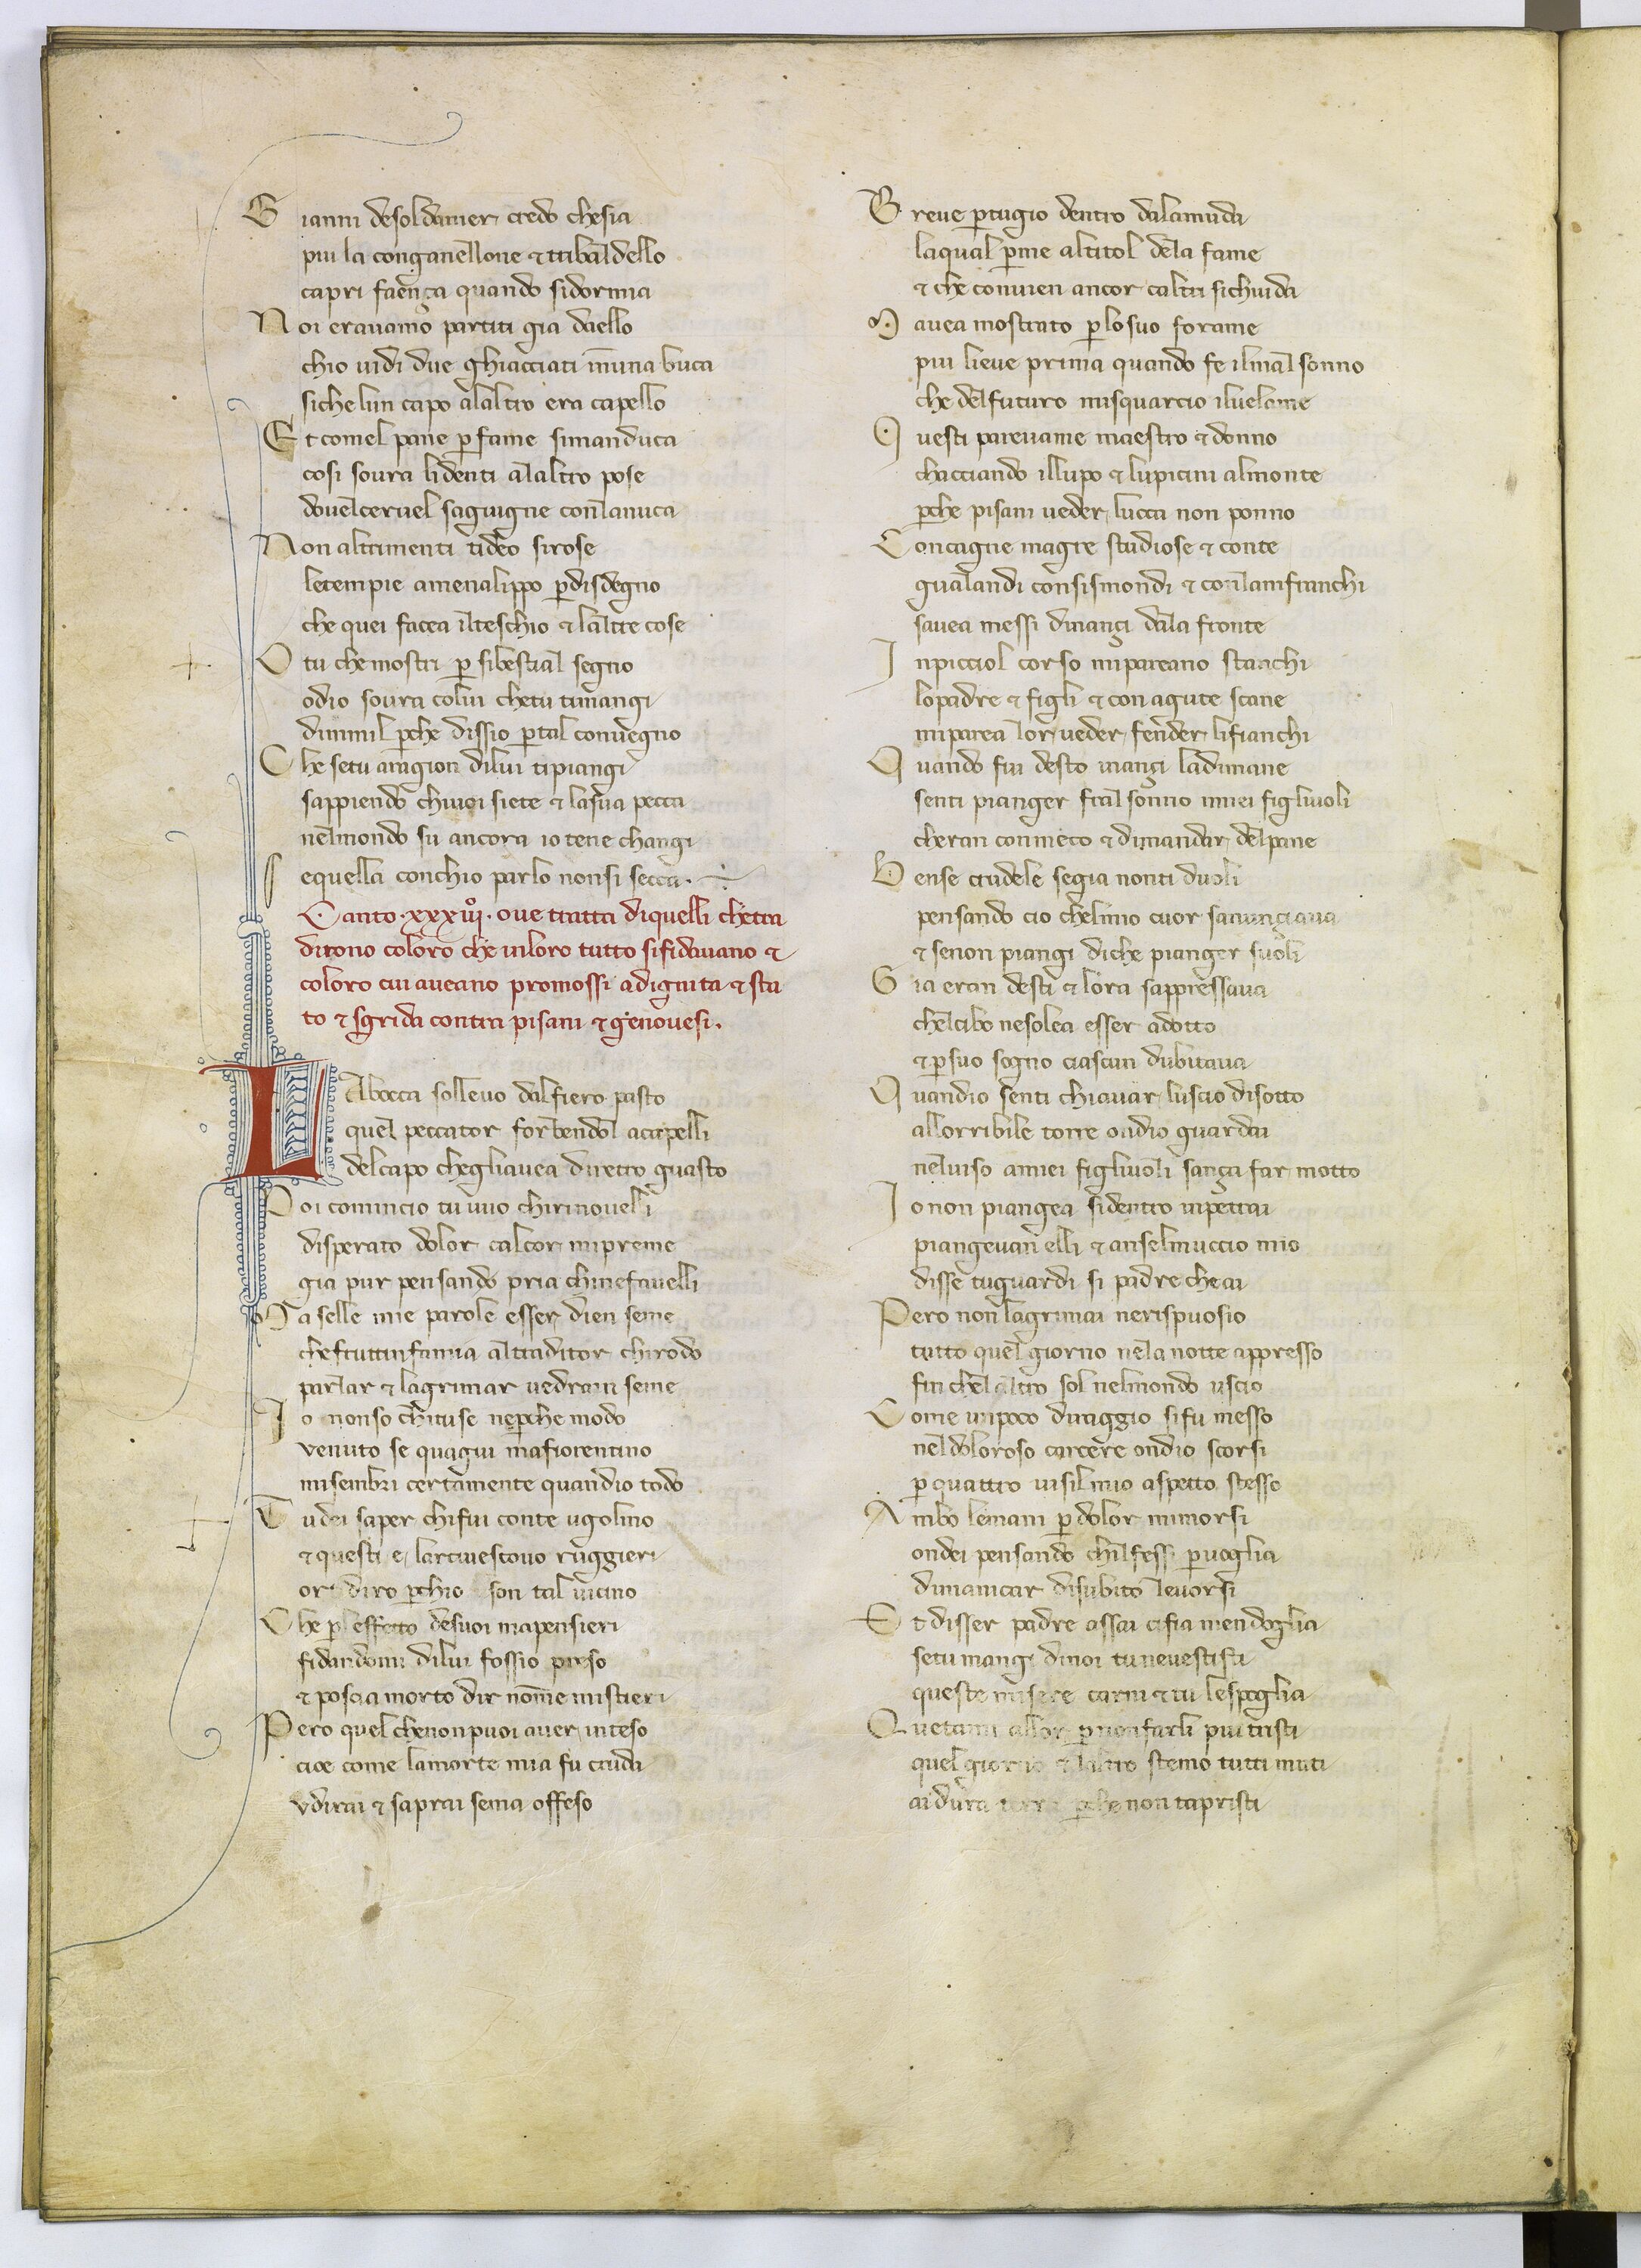 G ianni desoldanier credo chesia
piu la conganellone & ttibaldello
capri faença quando sidormia
N oi eravamo partiti gia daello
chio uidi due ghiacciati inuna buca
sichelun capo alaltro era capello
E t comel pane ꝑfame simanduca
cosi soura lidenti alaltro pose
douelceruel sagiugne conlanuca
N on altrimenti tideo sirose
letempie amenalippo ꝑdisdegno
che quei facea ilteschio & laltre cose
O tu chemostri ꝑ sibestial segno
odio soura colui chetu timangi
dimmil ꝑche dissio ꝑtal conuegno
C he setu aragion dilui tipiangi
sappiendo chiuoi siete & lasua pecca
nelmondo su ancora io tene changi
S equella conchio parlo nonsi secca.
Canto .xxxiii. oue tratta diquelli chetra
dirono coloro che inloro tutto sifidauano &
coloro cui aueano promossi adignita & sta
to & sgrida contra pisani & genouesi.
LAbocca solleuo dalfiero pasto
quel peccator forbendol acapelli
delcapo chegliauea diretro guasto
P oi comincio tu uuo chirinouelli
disperato dolor calcor mipreme
gia pur pensando pria chinefauelli
M a selle mie parole esser dien seme
chefruttinfamia altraditor chirodo
parlar & lagrimar uedrain seme
I o nonso chituse neꝑche modo
venuto se quagiu mafiorentino
misembri certamente quandio todo
T udei saper chifui conte ugolino
& questi e larciuescouo ruggieri
or diro ꝑchio son tal uicino
C he ꝑleffetto desuoi mapensieri
fidandomi dilui fossio preso
& poscia morto dir nomme mistieri
P ero quel chenonpuoi auer inteso
cioe come lamorte mia fu cruda
vdirai & saprai sema offeso
B reue ꝑtugio dentro dalamuda
laqual ꝑme altitol dela fame
& che conuien ancor caltri sichiuda
M auea mostrato ꝑlosuo forame
piu lieue prima quando fe ilmal sonno
che delfuturo misquarcio iluelame
Q uesti pareuame maestro & donno
chacciando illupo & lupicini almonte
ꝑche pisani ueder lucca non ponno
C oncagne magre studiose & conte
gualandi consismondi & conlamfranchi
sauea messi dinançi dala fronte
I npicciol corso mipareano stanchi
lopadre & figli & con agute scane
miparea lor ueder fender lifianchi
Q uando fui desto inançi ladimane
senti pianger fral sonno imiei figliuoli
cheran conmeco & dimandar delpane
B ense crudele segia nonti duoli
pensando cio chelmio cuor sanunçiaua
& senon piangi diche pianger suoli
G ia eran desti & lora sappressaua
chelcibo nesolea esser adotto
& ꝑsuo sogno ciascun dubitaua
Q uandio senti chiauar luscio disotto
allorribile torre ondio guardai
neluiso amiei figliuoli sança far motto
I o non piangea sidentro inpetrai
piangeuan elli & anselmuccio mio
disse tuguardi si padre che ai
P ero non lagrimai nerispuosio
tutto quel giorno nela notte appresso
fin chelaltro sol nelmondo uscio
C ome unpoco diraggio sifu messo
neldoloroso carcere ondio scorsi
ꝑ quattro uisilmio aspetto stesso
A mbo lemani ꝑ dolor mimorsi
ondei pensando chilfessi ꝑuoglia
dimanicar disubito leuorsi
E t disser padre assai cifia mendoglia
setu mangi dinoi tuneuestisti
queste misere carni & tu lespoglia
Q uetami allor ꝑ nonfarli piu tristi
quel giorno & laltro stemo tutti muti
ai dura terra ꝑche non tapristi